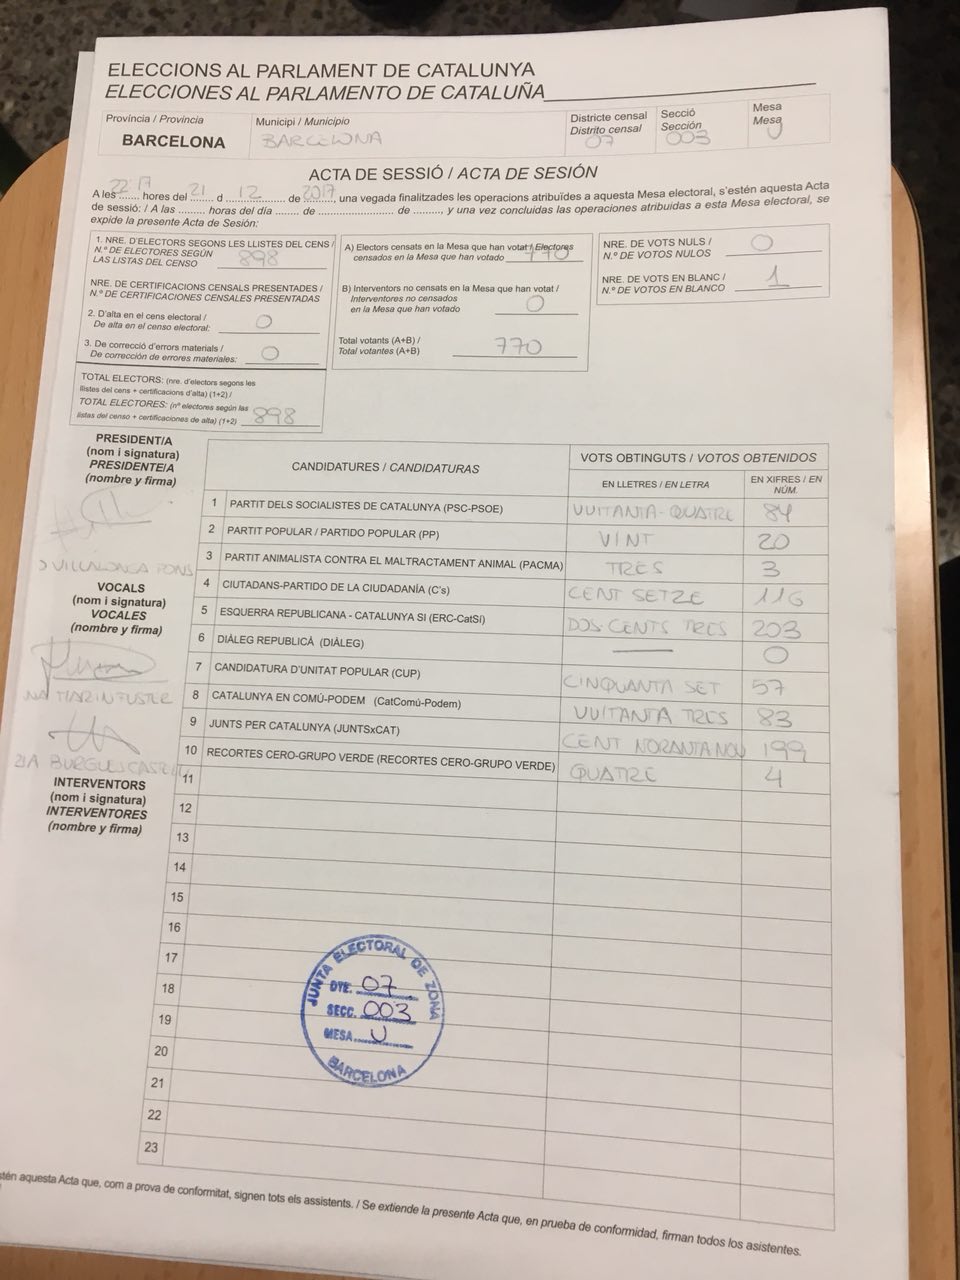 ELECCIONS AL PARLAMENT DE CATALUNYA
ELECCIONES AL PARLAMENTO DE CATALUÑA
Província / Provincia
BARCELONA
Municipi / Municipio
BARCELONA
Districte censal
Distrito censal
07
Secció
Sección
003
Mesa
Mesa
U
ACTA DE SESSIÓ / ACTA DE SESIÓN
A les 22 17 hores del 21 d 12 de 2017, una vegada finalitzades les operacions atribuïdes a aquesta Mesa electoral, s'estén aquesta Acta
de sessió: / A las ......... horas del día ....... de ........................ de ........., y una vez concluidas las operaciones atribuidas a esta Mesa electoral, se
expide la presente Acta de Sesión:
1. NRE. D'ELECTORS SEGONS LES LLISTES DEL CENS /
N.º DE ELECTORES SEGÚN
LAS LISTAS DEL CENSO 898
NRE. DE CERTIFICACIONS CENSALS PRESENTADES /
N.º DE CERTIFICACIONES CENSALES PRESENTADAS
2. D'alta en el cens electoral /
De alta en el censo electoral: 0
3. De correcció d'errors materials /
De corrección de errores materiales: 0
TOTAL ELECTORS: (nre. d'electors segons les
llistes del cens + certificacions d'alta) (1+2) /
TOTAL ELECTORES: (nº electores según las
listas del censo + certificaciones de alta) (1+2) 898
A) Electors censats en la Mesa que han votat / Electores
censados en la Mesa que han votado 770
B) Interventors no censats en la Mesa que han votat /
Interventores no censados
en la Mesa que han votado 0
Total votants (A+B) /
Total votantes (A+B) 770
NRE. DE VOTS NULS /
N.º DE VOTOS NULOS 0
NRE. DE VOTS EN BLANC /
N.º DE VOTOS EN BLANCO 1
PRESIDENT/A
(nom i signatura)
PRESIDENTE/A
(nombre y firma)
VILLALONGA PONS
VOCALS
(nom i signatura)
VOCALES
(nombre y firma)
MARIN FUSTER
BURGUES
INTERVENTORS
(nom i signatura)
INTERVENTORES
(nombre y firma)
CANDIDATURES / CANDIDATURAS
VOTS OBTINGUTS / VOTOS OBTENIDOS
EN LLETRES / EN LETRA
EN XIFRES / EN NÚM.
1 PARTIT DELS SOCIALISTES DE CATALUNYA (PSC-PSOE) VUITANTA-QUATRE 84
2 PARTIT POPULAR / PARTIDO POPULAR (PP) VINT 20
3 PARTIT ANIMALISTA CONTRA EL MALTRACTAMENT ANIMAL (PACMA) TRES 3
4 CIUTADANS-PARTIDO DE LA CIUDADANÍA (C's) CENT SETZE 116
5 ESQUERRA REPUBLICANA - CATALUNYA SÍ (ERC-CatSí) DOS CENTS TRES 203
6 DIÀLEG REPUBLICÀ (DIÀLEG) 0
7 CANDIDATURA D'UNITAT POPULAR (CUP) CINQUANTA SET 57
8 CATALUNYA EN COMÚ-PODEM (CatComú-Podem) VUITANTA TRES 83
9 JUNTS PER CATALUNYA (JUNTSxCAT) CENT NORANTA NOU 199
10 RECORTES CERO-GRUPO VERDE (RECORTES CERO-GRUPO VERDE) QUATRE 4
11
12
13
14
15
16
17
18
19
20
21
22
23
JUNTA ELECTORAL DE ZONA
DTE. 07
SECC. 003
MESA U
BARCELONA
stén aquesta Acta que, com a prova de conformitat, signen tots els assistents. / Se extiende la presente Acta que, en prueba de conformidad, firman todos los asistentes.